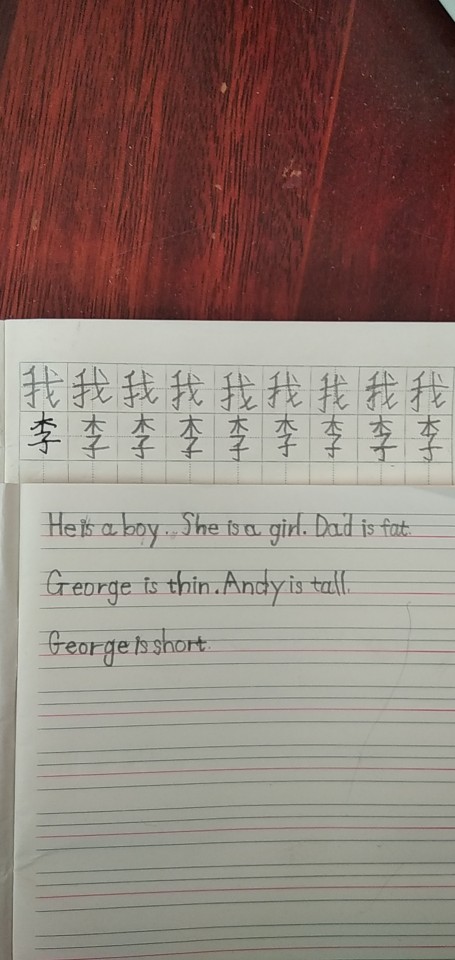 我我我我我我我我我
李李李李李李李李李
He is a boy. She is a girl. Dad is fat.
George is thin. Andy is tall.
George is short.